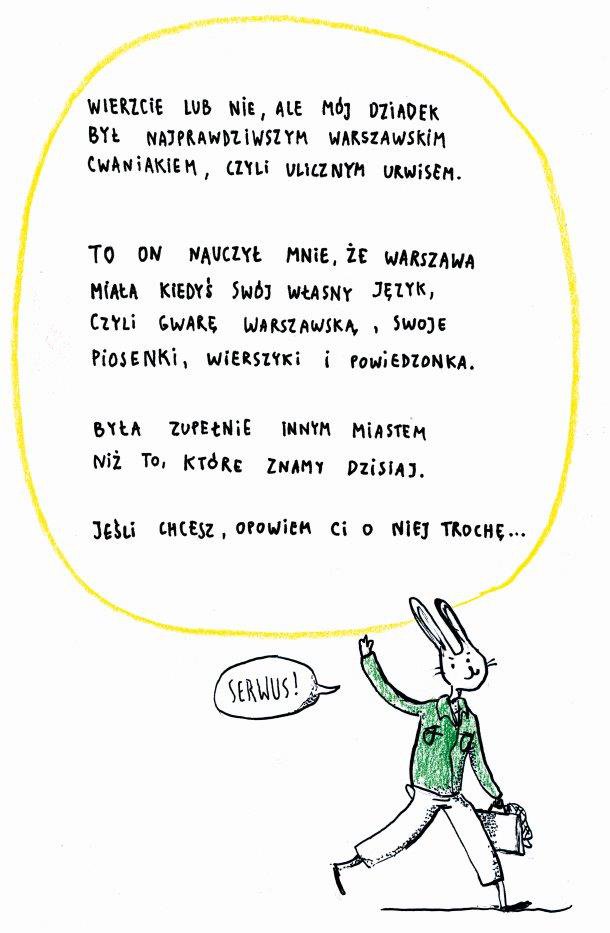 WIERZCIE LUB NIE, ALE MÓJ DZIADEK
BYŁ NAJPRAWDZIWSZYM WARSZAWSKIM
CWANIAKIEM, CZYLI ULICZNYM URWISEM.
TO ON NAUCZYŁ MNIE, ŻE WARSZAWA
MIAŁA KIEDYŚ SWÓJ WŁASNY JĘZYK,
CZYLI GWARĘ WARSZAWSKĄ, SWOJE
PIOSENKI, WIERSZYKI I POWIEDZONKA.
BYŁA ZUPEŁNIE INNYM MIASTEM
NIŻ TO, KTÓRE ZNAMY DZISIAJ.
JEŚLI CHCESZ, OPOWIEM CI O NIEJ TROCHĘ...
SERWUS!